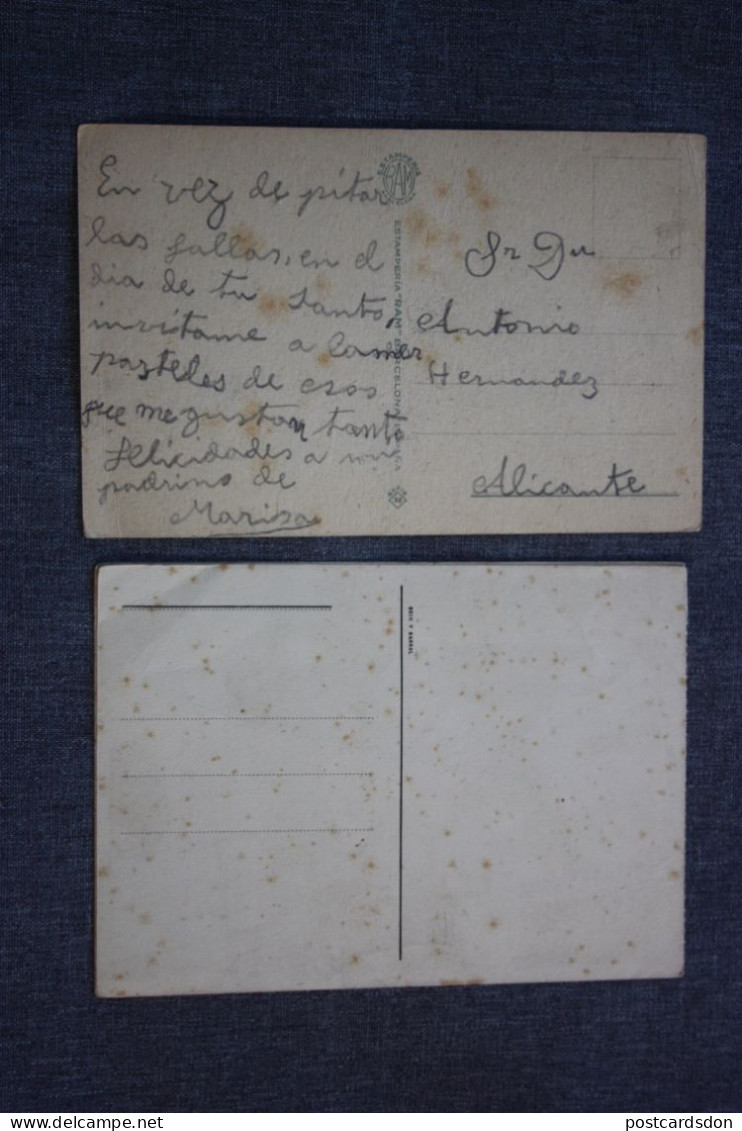 En vez de pitar
las fallas, en el
dia de tu santo,
invitame a comer
pasteles de esos
que me gustan tanto
Felicidades a mi
padrino de
Marisa
ESTAMPERIA
RAM
ESTAMPERIA "RAM" BARCELONA
Sr Dn
Antonio
Hernandez
Alicante
SEIX Y BARRAL
postcardsdon